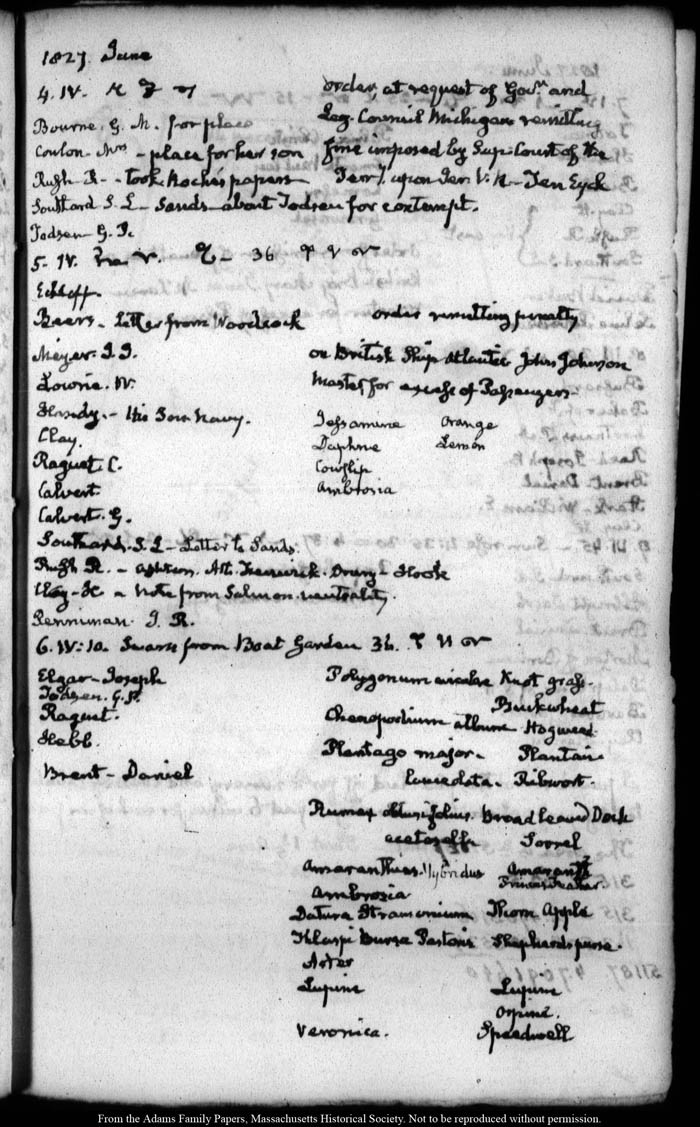 1827. June
4. IV.
order, at request of Govr. and
Bourne, G. M. for place
Leg. Council Michigan remitting
Coulon. Mrs - place for her son
fine imposed by Sup. Court of the
Rush R - took Roche's papers
Terry. upon Jer. V. R. Ten Eyck
Southard S. L - Sands - about Todsen for contempt.
Todsen G. P.
5. IV. 36
Beers - Letter from Woodcock
order remitting penalty
Meyer. J. J.
on British Ship Atlantic John Johnson
Lowrie. W.
Master for excess of Passengers -
Handy. - His Son Navy.
Jessamine Orange
Clay.
Daphne Lemon
Raguet C.
Cowslip
Calvert
Ambrosia
Calvert. G.
Southard. S. L - Letter to Sands.
Rush R. - Drury - Hook
Clay - H a note from Salmon. neutrality.
Penniman J. R.
6. IV: 10. Swam from Boat Garden 36.
Elgar - Joseph
Polygonum aviculare Knot grass.
Todsen. G. P.
Buckwheat
Raguet.
Chenopodium album Hogweed
Hebb.
Plantago major - Plantain
Brent - Daniel
Lanceolata. Ribwort.
Rumex obtusifolius. broad leaved Dock
acetosella Sorrel
Amaranthus. Hybridus Amaranth
Princes feather
Ambrosia
Datura Stramonium Thorn Apple
Thlaspi Bursa Pastoris Shepherds purse.
Aster
Lupine Lupine
Orpine.
Veronica. Speedwell
From the Adams Family Papers, Massachusetts Historical Society. Not to be reproduced without permission.